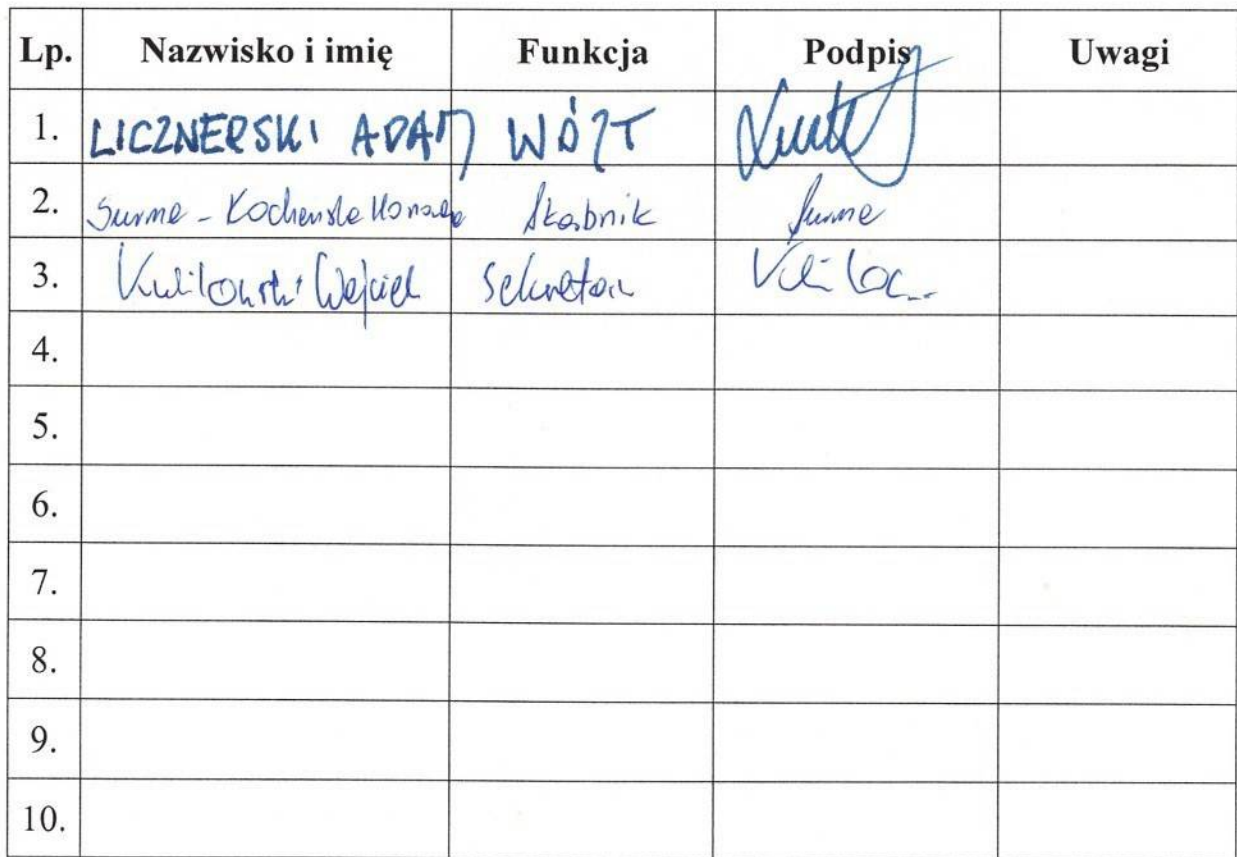 Lp. Nazwisko i imię Funkcja Podpis Uwagi
1. LICZNERSKI ADAM WÓJT
2. Surma - Kochańska Skarbnik Surma
3. Kulikowski Wojciech Sekretarz
4.
5.
6.
7.
8.
9.
10.